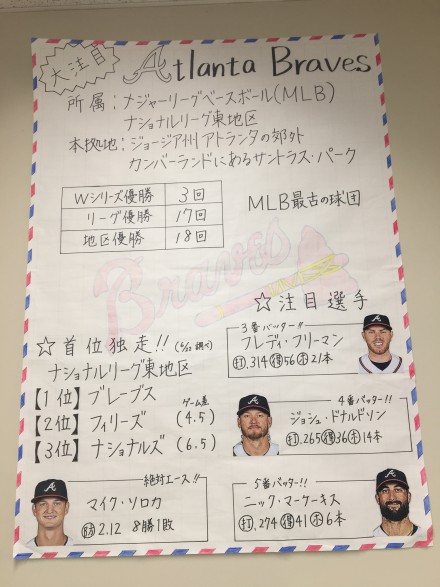 大注目
Atlanta Braves
所属：ナジャーリーグベースボール(MLB)
ナショナルリーグ東地区
本拠地：ジョージア州アトランタの郊外
カンバーランドにあるサントラス・パーク
Wシリーズ優勝 3回
リーグ優勝 17回
地区優勝 18回
MLB最古の球団
Braves
☆注目選手
3番バッター!!
フレディ・フリーマン
打.314 得56 本21本
☆首位独走!! (6/22調べ)
ナショナルリーグ東地区
ゲーム差
【1位】ブレーブス
【2位】フィリーズ (4.5)
【3位】ナショナルズ (6.5)
4番バッター!!
ジョシュ・ドナルドソン
打.265 得36 本14本
絶対エース!!
マイク・ソロカ
防2.12 8勝1敗
5番バッター!!
ニック・マーケーキス
打.274 得41 本6本